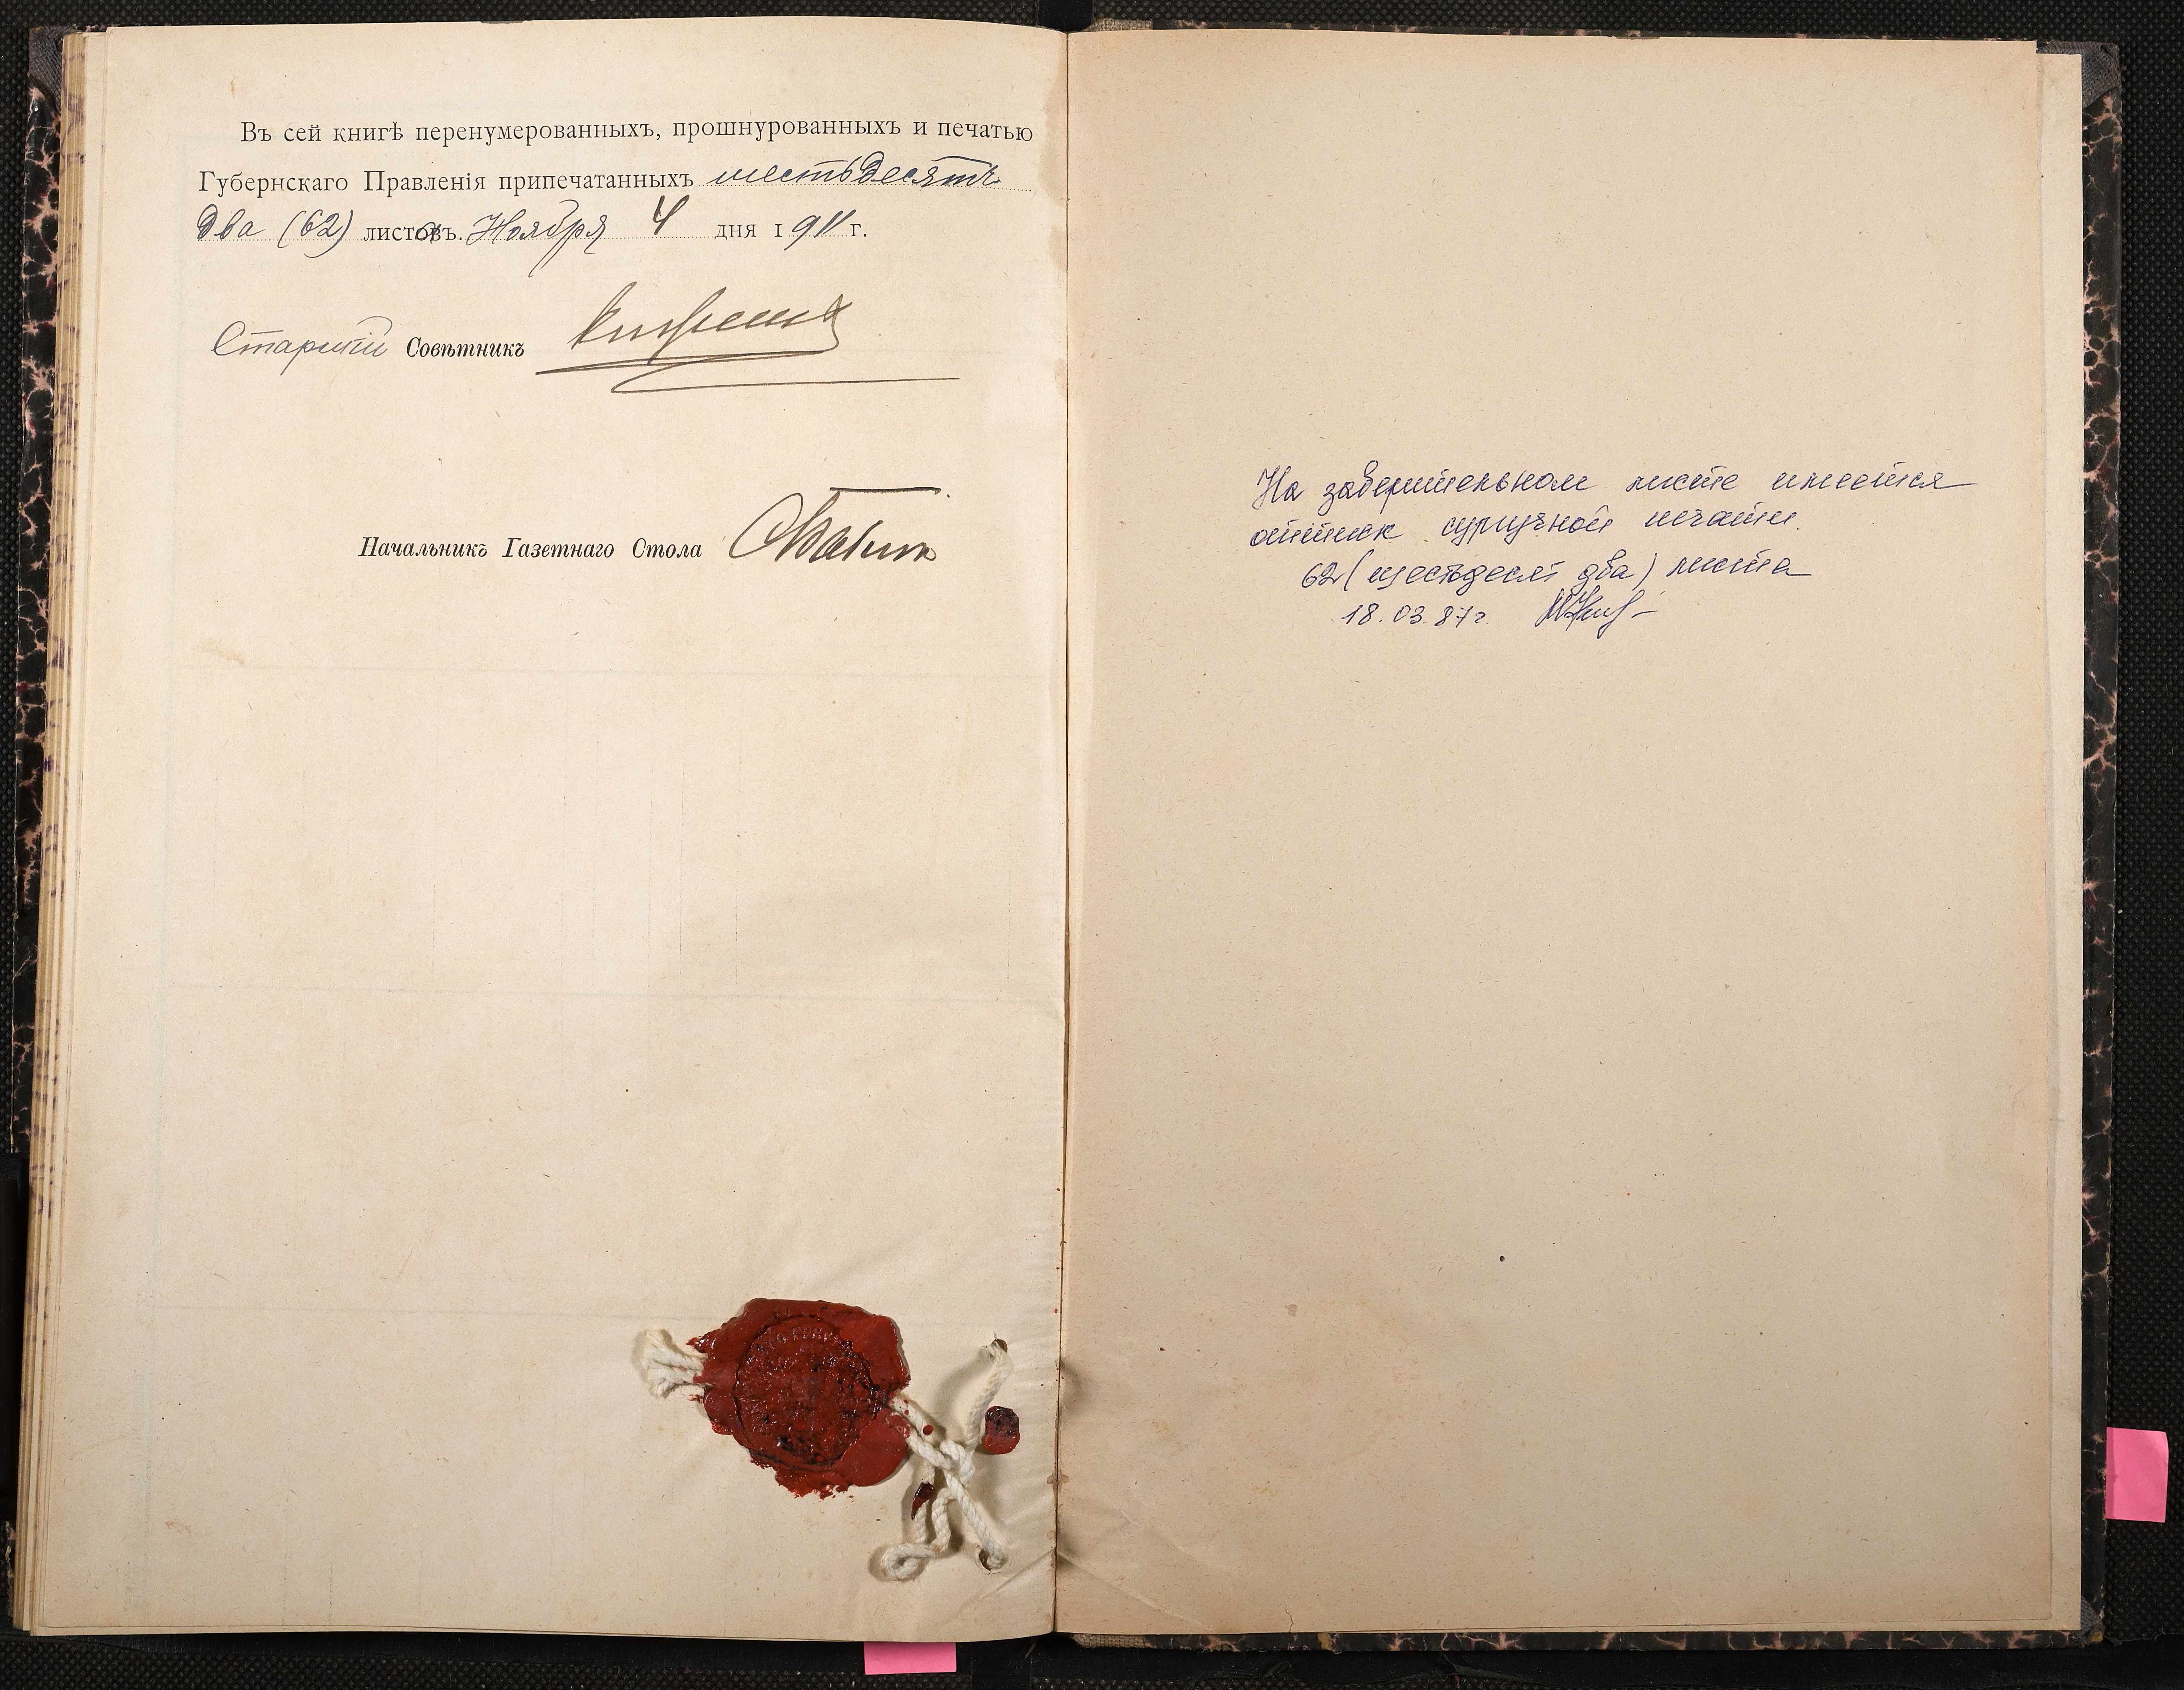 Въ сей книгѣ перенумерованныхъ, прошнурованныхъ и печатью
Губернскаго Правленія припечатанныхъ шестьдесятъ
два (62) листовъ. Ноября 4 дня 1911 г.
Старшій Совѣтникъ
Начальникъ Газетнаго Стола
На заверительном листе имеется
оттиск сургучной печати.
62 (шестьдесят два) листа
18.03.87г.